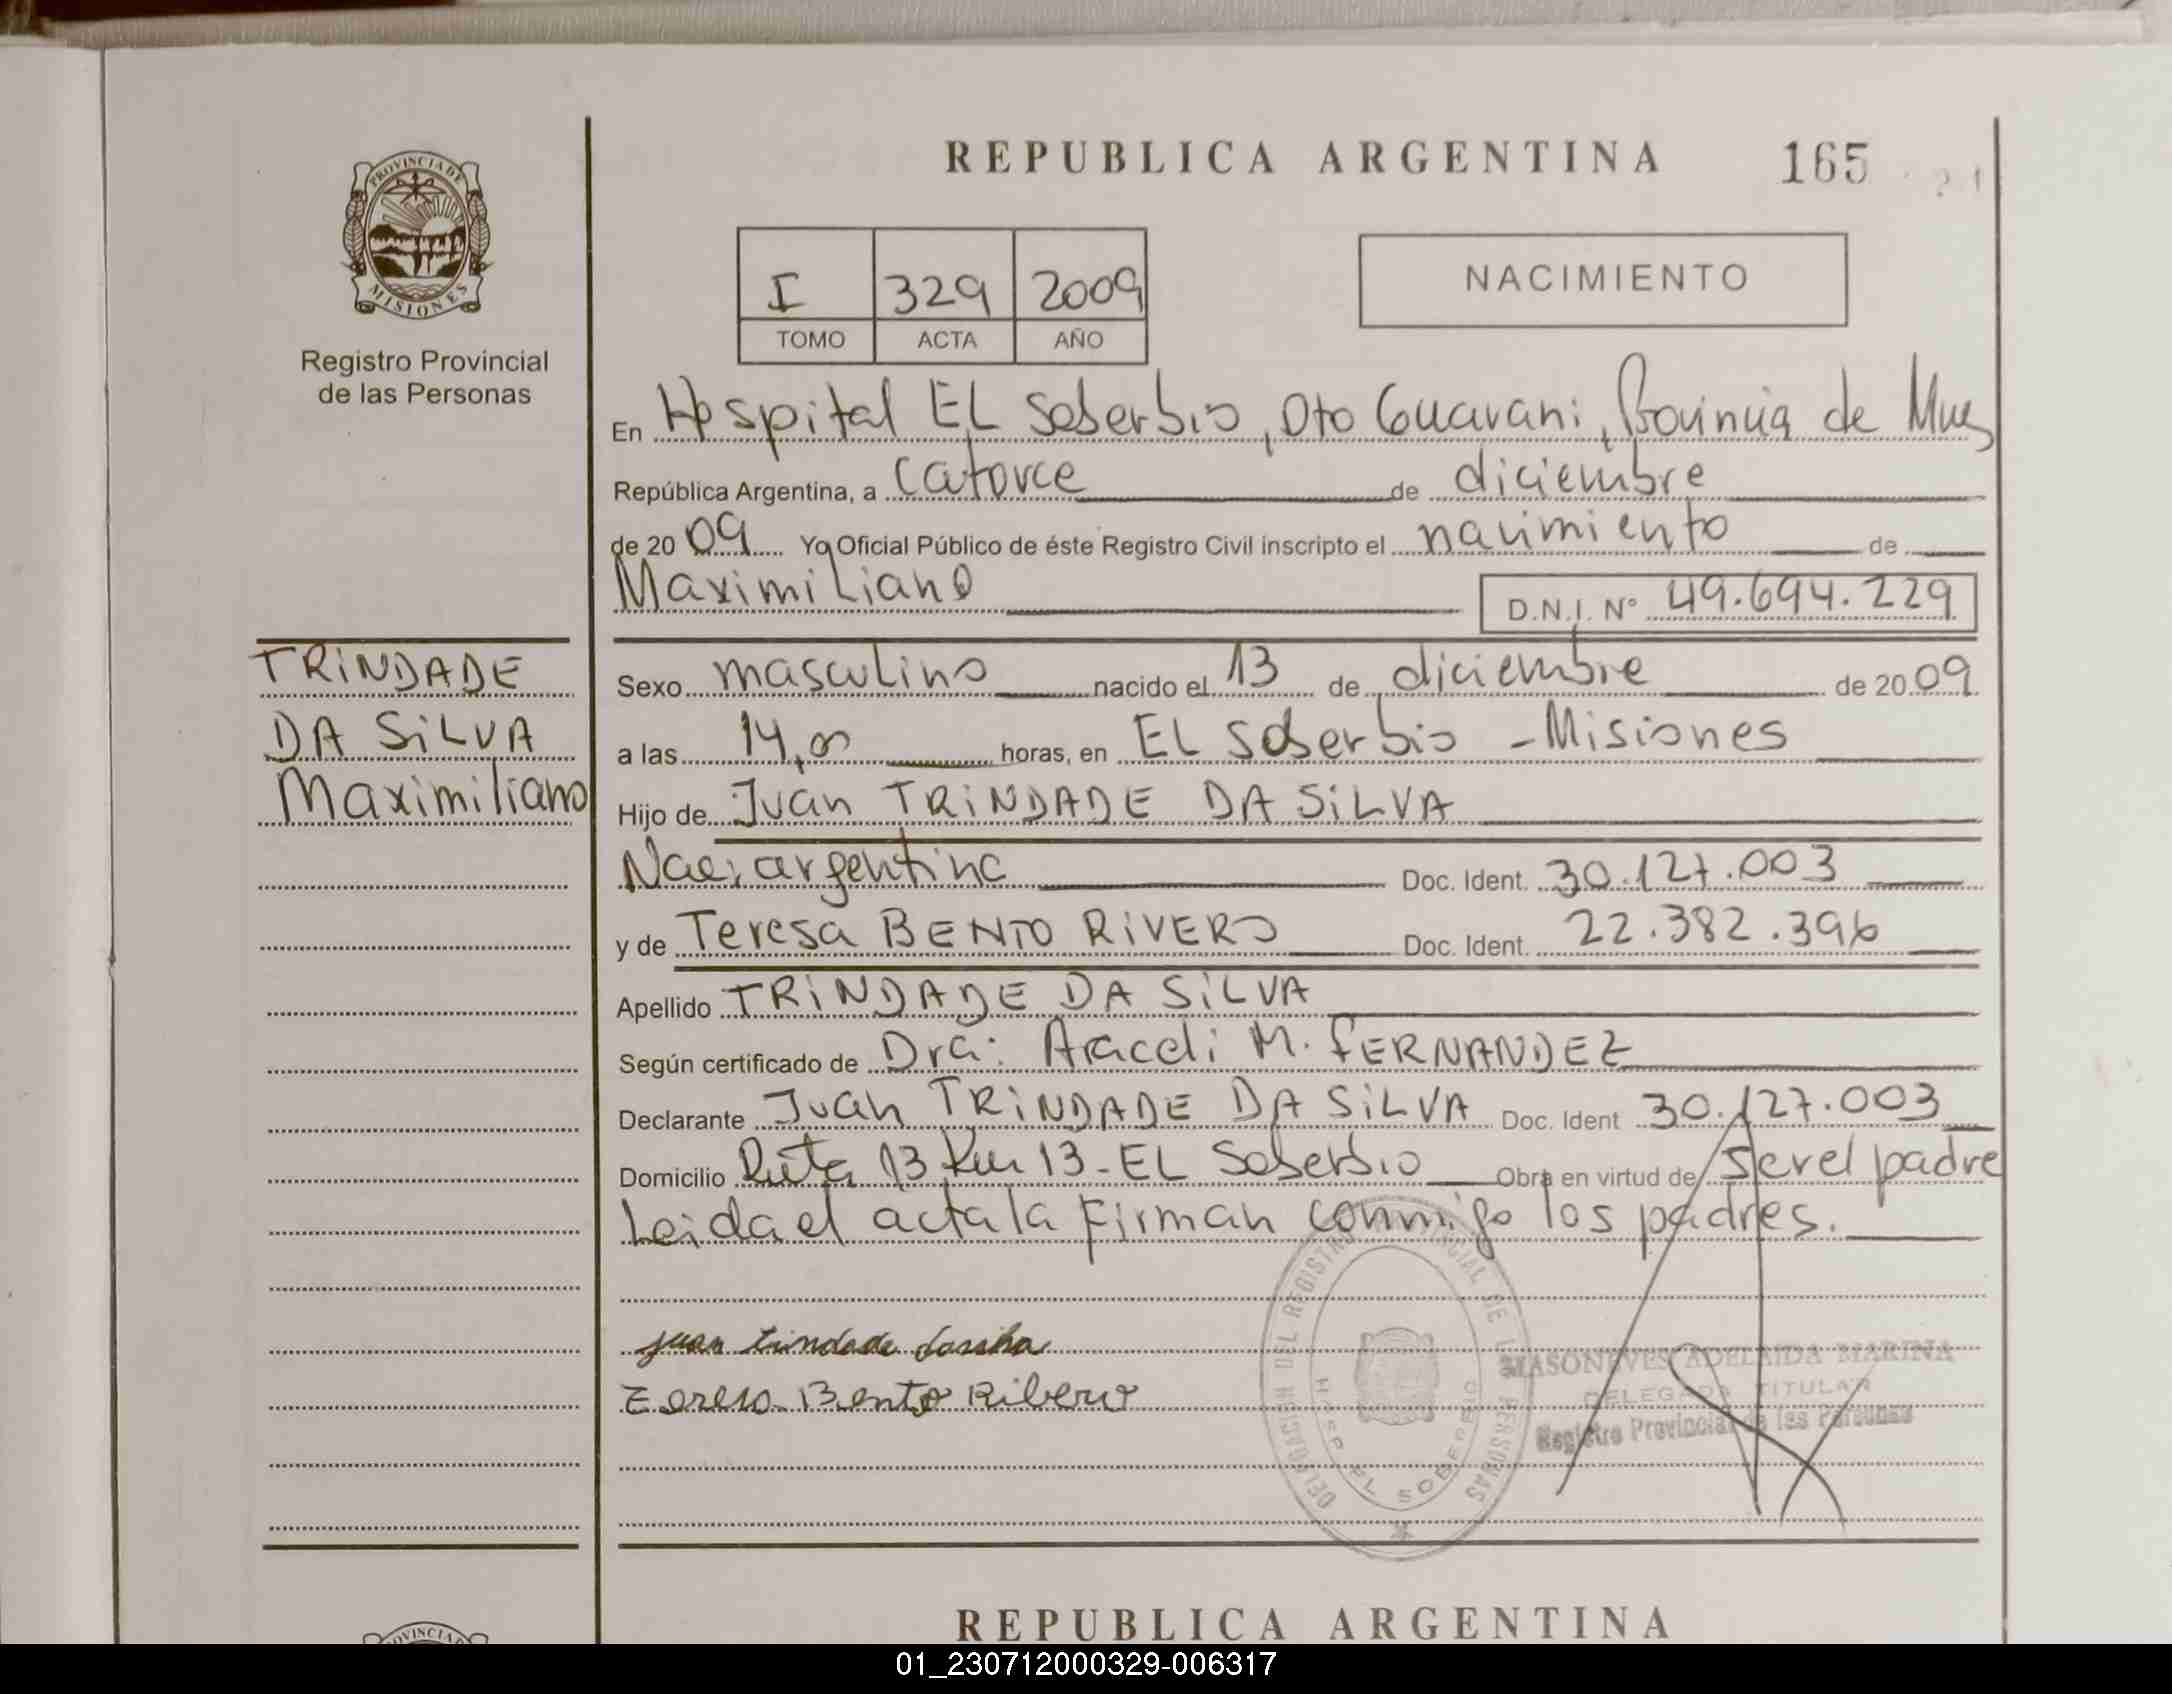 REPUBLICA ARGENTINA 165
PROVINCIA DE
MISIONES
Registro Provincial
de las Personas
I 329 2009
TOMO ACTA AÑO
NACIMIENTO
En Hospital EL Soberbio, Dto Guarani, Provincia de Mnes
República Argentina, a catorce de diciembre
de 20 09 Yo Oficial Público de éste Registro Civil inscripto el nacimiento de
Maximiliano D.N.I. Nº 49.694.229
TRINDADE
DA SILVA
Maximiliano
Sexo masculino nacido el 13 de diciembre de 20 09
a las 14,00 horas, en EL Soberbio - Misiones
Hijo de Juan TRINDADE DA SILVA
Nac: argentina Doc. Ident. 30.127.003
y de Teresa BENTO RIVERO Doc. Ident. 22.382.396
Apellido TRINDADE DA SILVA
Según certificado de Dra: Araceli M. FERNANDEZ
Declarante Juan TRINDADE DA SILVA Doc. Ident 30.127.003
Domicilio Ruta 13 Km 13 - EL Soberbio Obra en virtud de ser el padre
Leida el acta la firman conmigo los padres.
juan trindade dasilva
Bento Ribero
DELEGACION DEL REGISTRO PROVINCIAL DE LAS PERSONAS
HOSP EL SOBERBIO
MASONEVES ADELAIDA MARINA
DELEGADA TITULAR
Registro Provincial de las Personas
REPUBLICA ARGENTINA
01_230712000329-006317